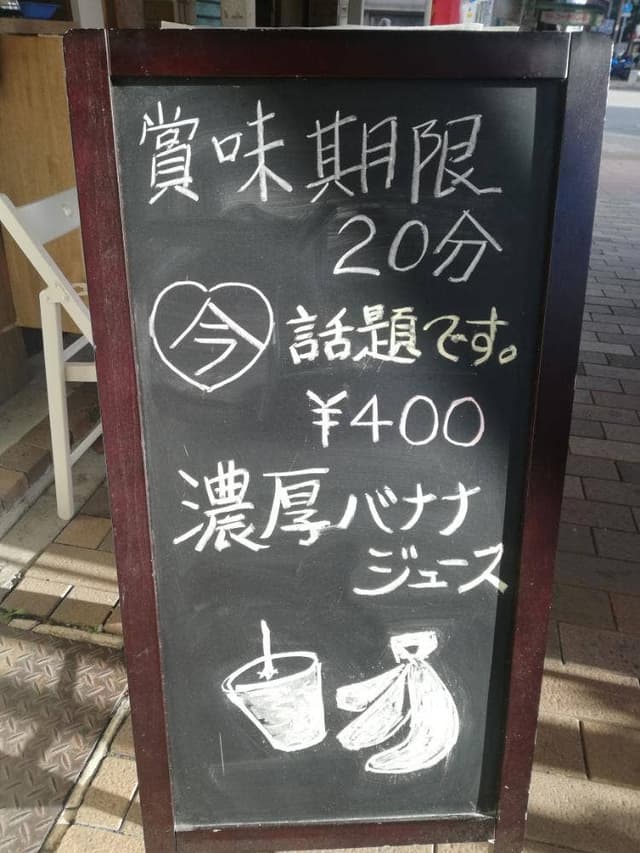 賞味期限
20分
今 話題です。
¥400
濃厚バナナ
ジュース